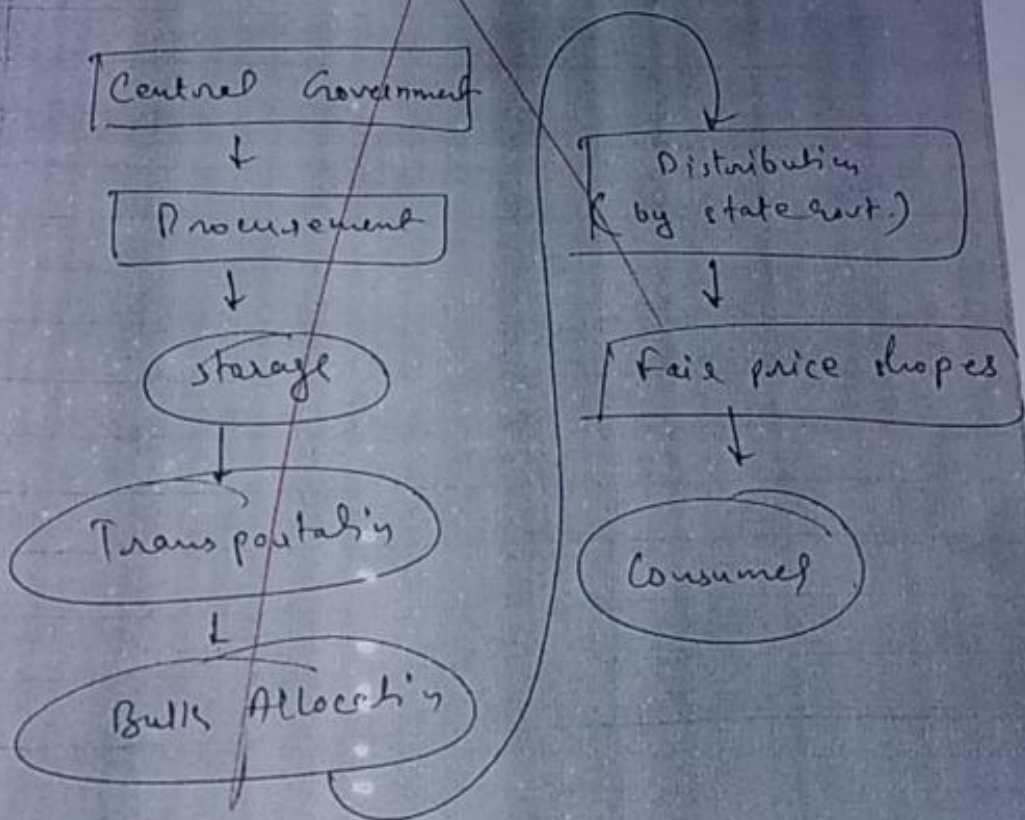 Central Government
Procurement
Storage
Transportation
Bulk Allocation
Distribution
(by state Govt.)
Fair price shopes
Consumer